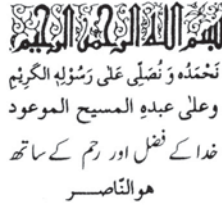 بسم الله الرحمن الرحيم
نَحْمَدُه وَ نُصَلِّی عَلٰی رَسُوْلِهِ الكَرِيْمِ
وعلىٰ عبدہِ المسیح الموعود
خدا کے فضل اور رحم کے ساتھ
هو النّاصر